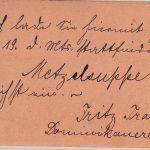 lade Sie hiermit
19. d. Mts. stattfind
Metzelsuppe
ein.
Fritz Tra
Dominikanere